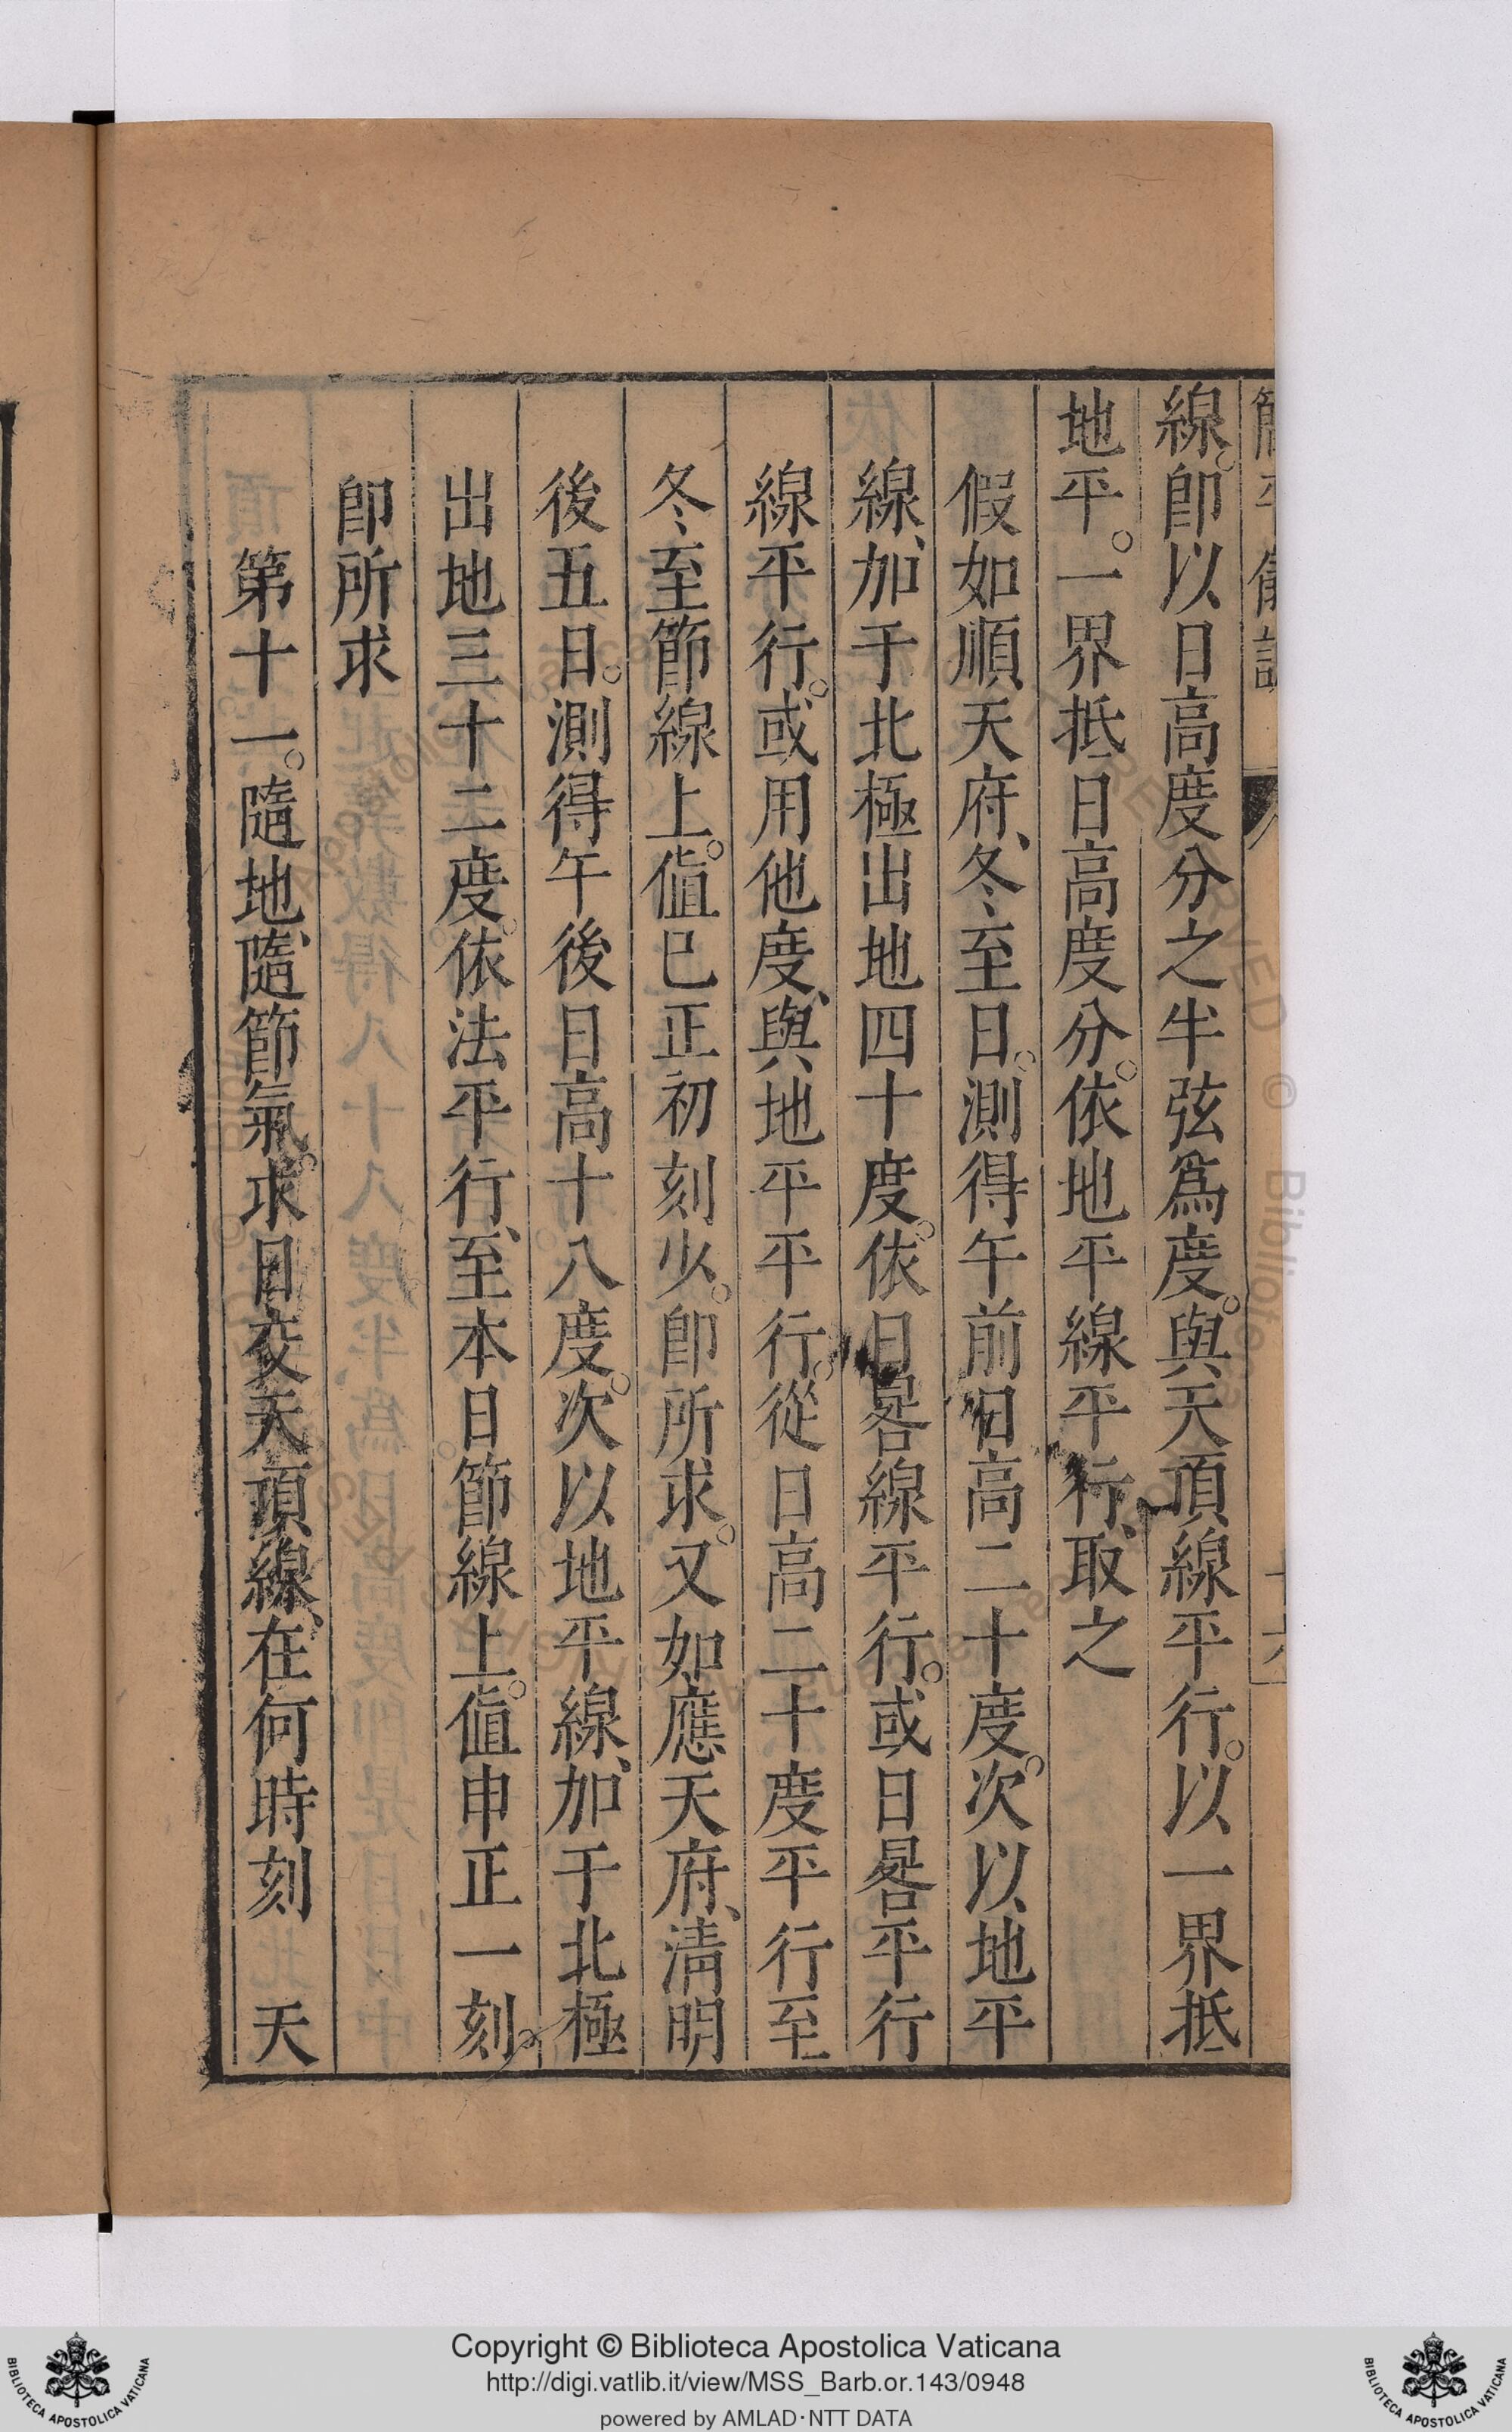 線。卽以日高度分之半弦爲度。與天頂線平行。以一界抵
地平。一界抵日高度分。依地平線平行、取之
假如順天府、冬至日。測得午前日高二十度。次以地平
線、加于北極出地四十度。依日晷線平行。或日晷平行
線平行。或用他度、與地平平行。從日高二十度平行至
冬至節線上。値巳正初刻少。卽所求。又如應天府、淸明
後五日。測得午後日高十八度。次以地平線、加于北極
出地三十二度。依法平行、至本日節線上。値申正一刻
卽所求
第十一。隨地、隨節氣。求日交天頂線、在何時刻 天
Copyright © Biblioteca Apostolica Vaticana
http://digi.vatlib.it/view/MSS_Barb.or.143/0948
powered by AMLAD·NTT DATA
BIBLIOTECA APOSTOLICA VATICANA
BIBLIOTECA APOSTOLICA VATICANA